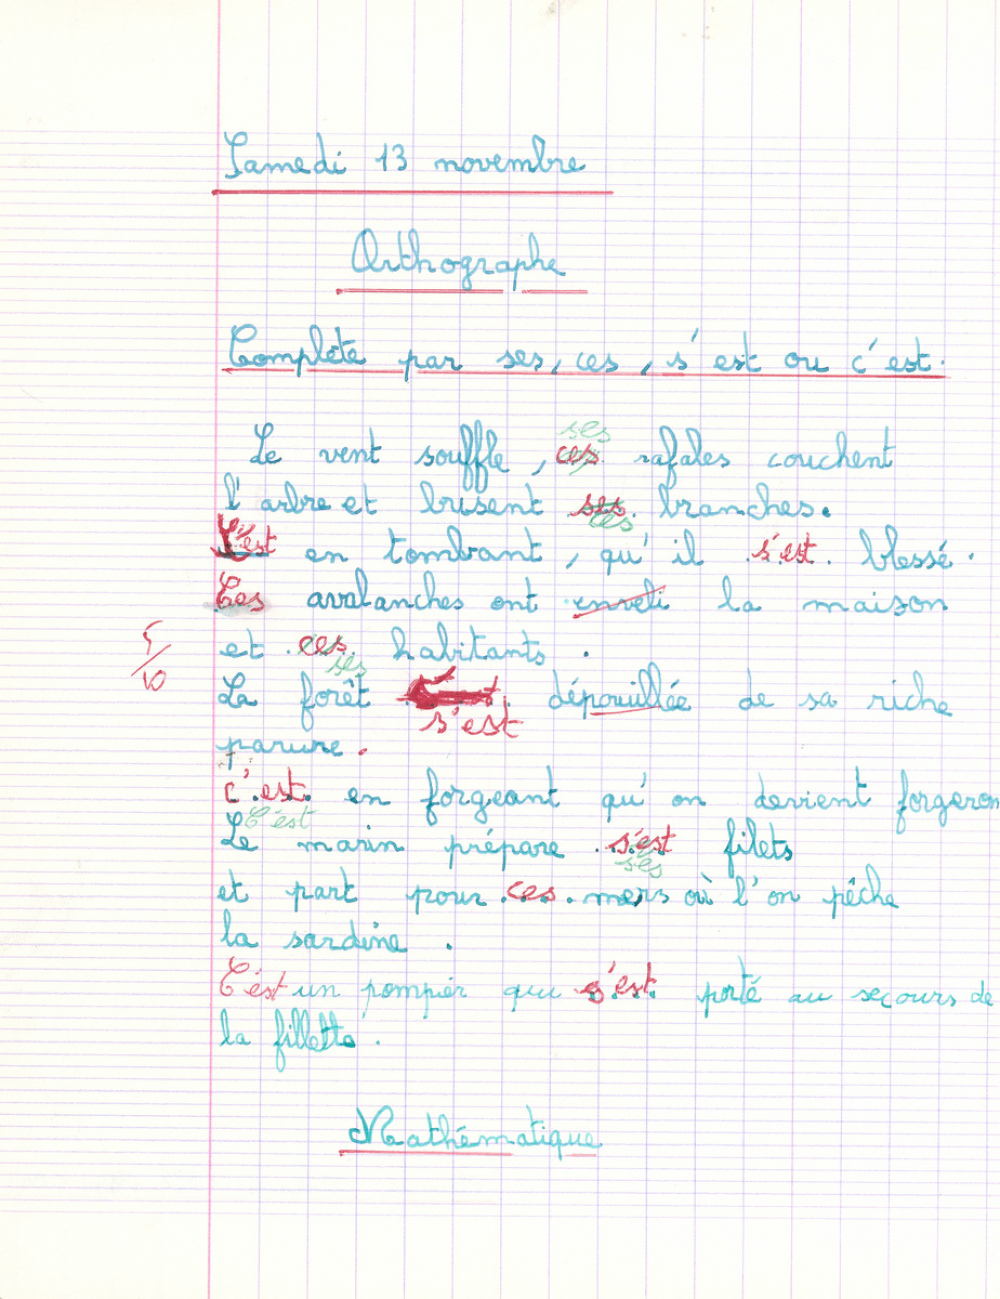 Samedi 13 novembre
Orthographe
Complète par ses, ces, s'est ou c'est.
ses
Le vent souffle, ces rafales couchent
l'arbre et brisent ses branches.
ces
C'est en tombant, qu'il s'est blessé.
Ces avalanches ont enveli la maison
et ces habitants.
ses
5/10
La forêt dépouillée de sa riche
s'est
parure.
c'est en forgeant qu'on devient forgeron
C'est
Le marin prépare s'est filets
ses
et part pour ces mers où l'on pêche
la sardine.
C'est un pompier qui s'est porté au secours de
la fillette.
Mathématique